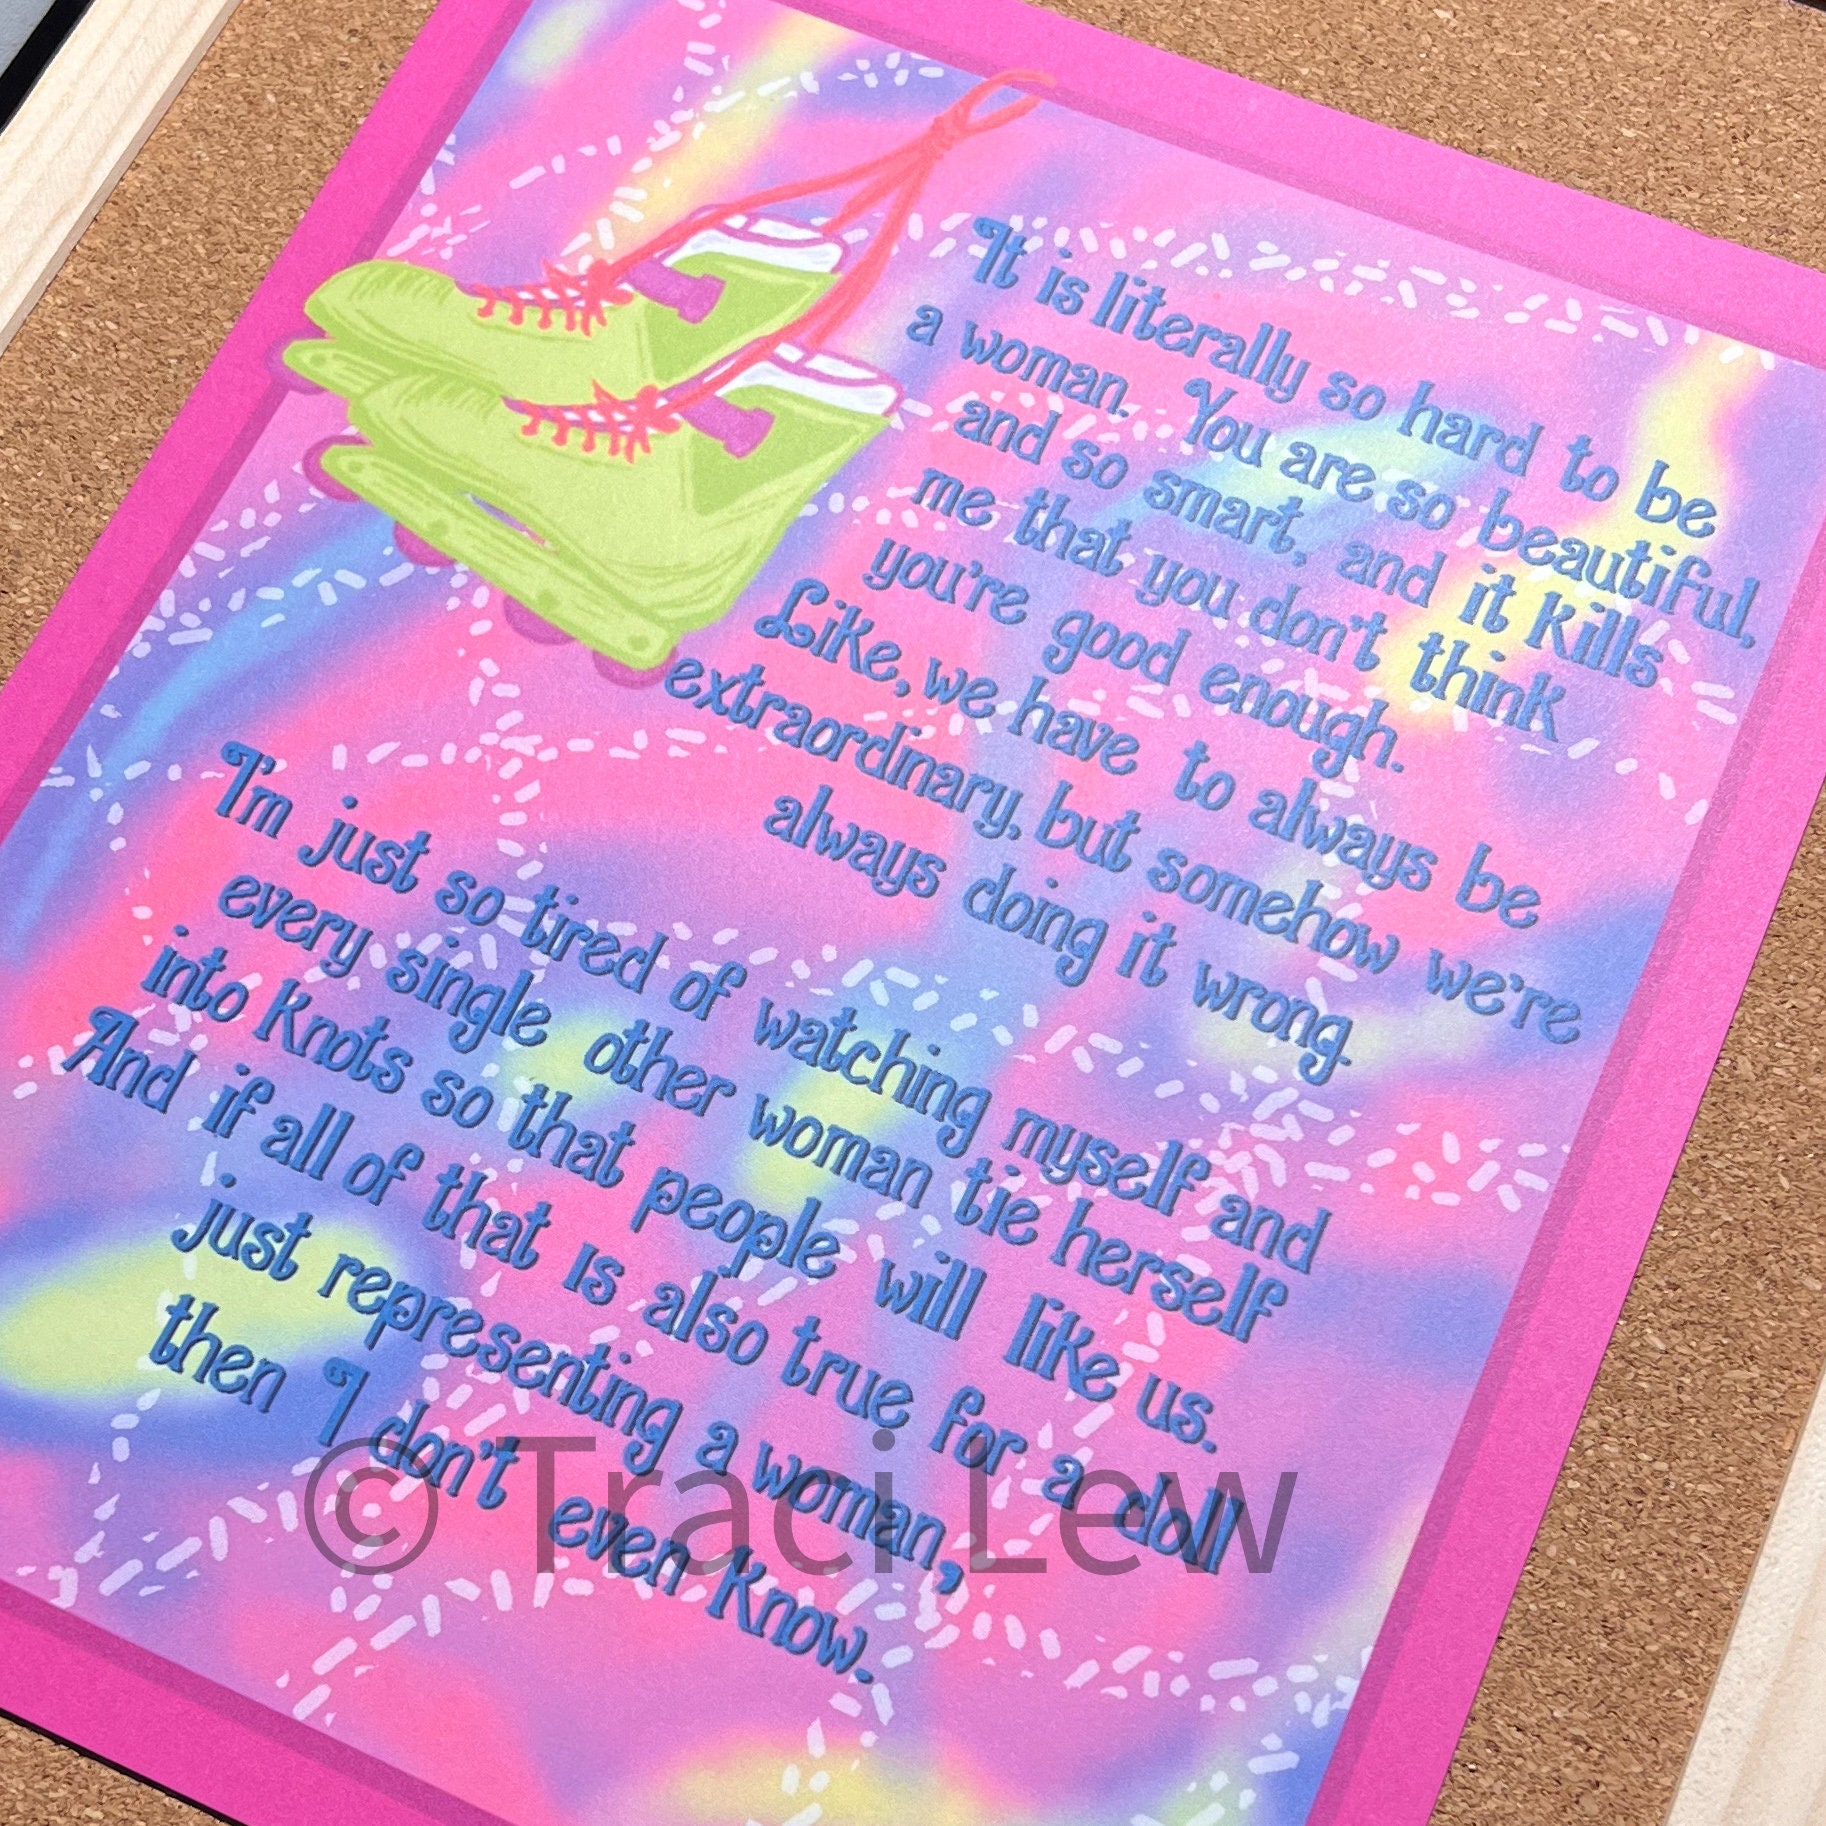 It is literally so hard to be
a woman. You are so beautiful,
and so smart, and it kills
me that you don't think
you're good enough.
Like, we have to always be
extraordinary, but somehow we're
always doing it wrong.
I'm just so tired of watching myself and
every single other woman tie herself
into knots so that people will like us.
And if all of that is also true for a doll
just representing a woman,
then I don't even know.
© Traci Lew